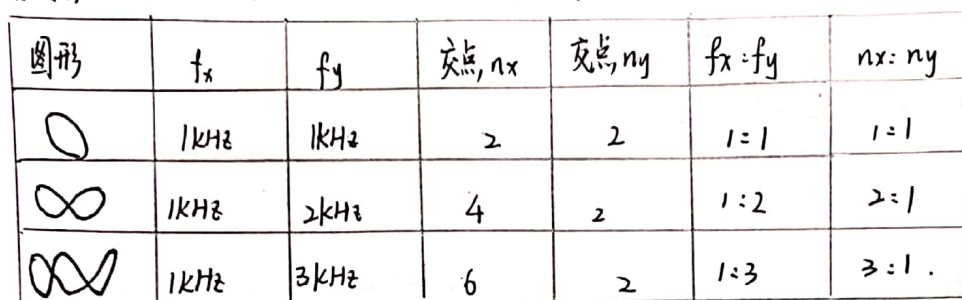 图形 fx fy 交点,nx 交点,ny fx:fy nx:ny
1kHz 1kHz 2 2 1:1 1:1
1kHz 2kHz 4 2 1:2 2:1
1kHz 3kHz 6 2 1:3 3:1.